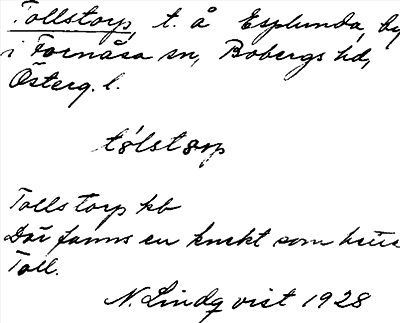 Tollstorp, t. å Esplunda, by
i Fornåsa sn, Bobergs hd,
Österg. l.
tω̍lstωrp
Tollstorp kb
Där fanns en knekt som hette
Toll.
N. Lindqvist 1928